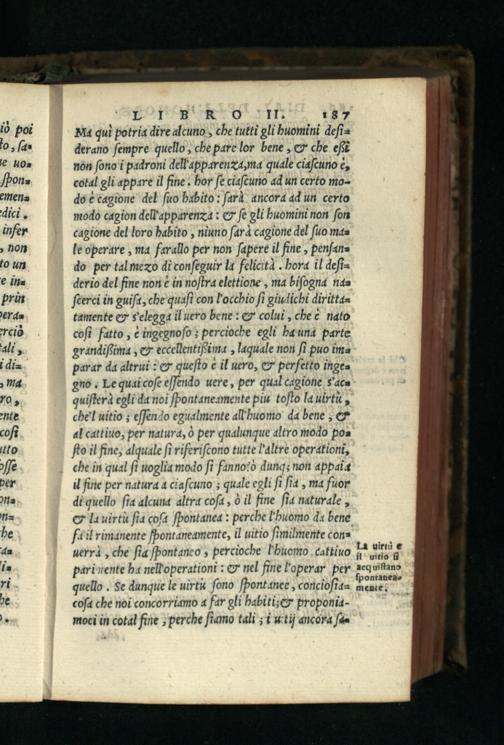 LIBRO II. 187
Ma quì potria dire alcuno, che tutti gli huomini desi=
derano sempre quello, che pare lor bene, & che eßi
non sono i padroni dell'apparenza, ma quale ciascuno è,
cotal gli appare il fine. hor se ciascuno ad un certo mo-
do è cagione del suo habito: sarà ancora ad un certo
modo cagion dell'apparenza: & se gli huomini non son
cagione del loro habito, niuno sarà cagione del suo ma=
le operare, ma farallo per non sapere il fine, pensan=
do per tal mezo di conseguir la felicità. hora il desi=
derio del fine non è in nostra elettione, ma bisogna na=
scerci in guisa, che quasi con l'occhio si giudichi diritta=
tamente & s'elegga il uero bene: & colui, che è nato
cosi fatto, è ingegnoso; percioche egli ha una parte
grandißima, & eccellentißima, laquale non si puo im=
parar da altrui: & questo è il uero, & perfetto inge=
gno. Le quai cose essendo uere, per qual cagione s'ac=
quisterà egli da noi spontaneamente piu tosto la uirtù,
che'l uitio; essendo egualmente all'huomo da bene, &
al cattiuo, per natura, ò per qualunque altro modo po=
sto il fine, alquale si riferiscono tutte l'altre operationi,
che in qual si uoglia modo si fanno? ò dunq; non appaia
il fine per natura a ciascuno; quale egli si sia, ma fuor
di quello sia alcuna altra cosa, ò il fine sia naturale,
& la uirtù sia cosa spontanea: perche l'huomo da bene
fa il rimanente spontaneamente, il uitio similmente con=
uerrà, che sia spontaneo, percioche l'huomo cattiuo
parimente ha nell'operationi: & nel fine l'operar per
quello. Se dunque le uirtù sono spontanee, conciosia=
cosa che noi concorriamo a far gli habiti; & proponia-
moci in cotal fine, perche siamo tali; i uitij ancora sa=
La uirtù e
il uitio si
acquistano
spontanea=
mente.
iò poi
to, sa=
ue uo=
spon=
emen=
edici.
infer
, non
to un
e in=
prin
pera=
erciò
tali,
i di=
, ma
ro,
ente
cosi
utto
osse
per
on=
on=
he
ra=
li=
ri
he
o.